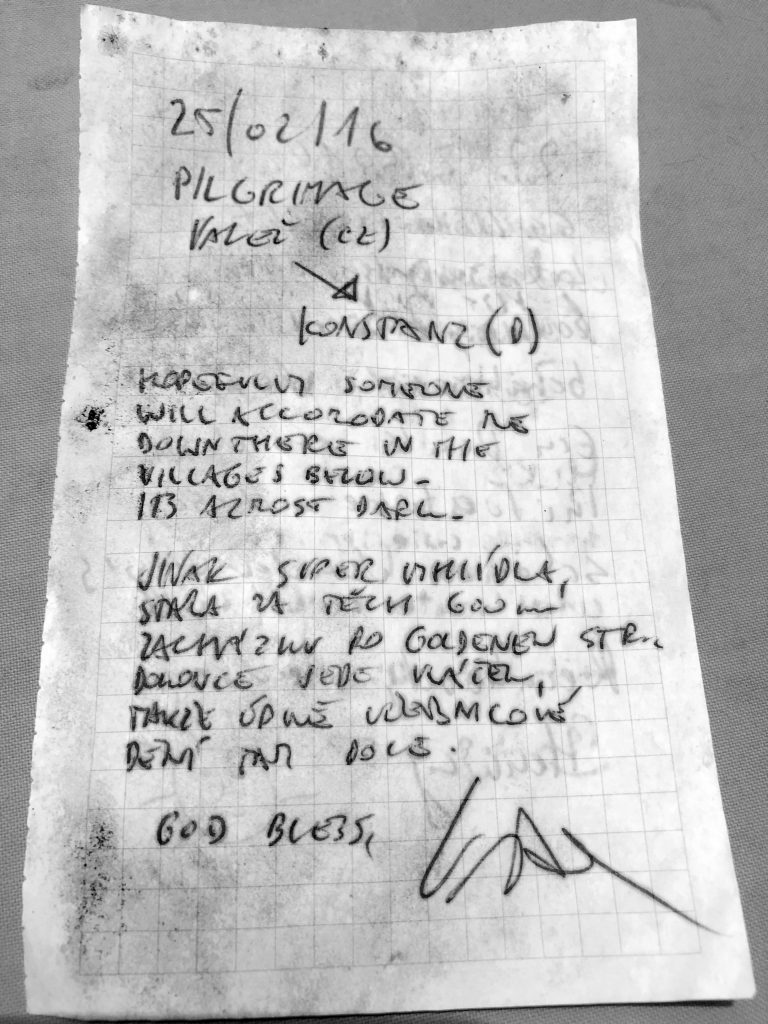 25/02/16
PILGRIMAGE
VALEČ (CZ)
KONSTANZ (D)
HOPEFULLY SOMEONE
WILL ACCOMODATE ME
DOWN THERE IN THE
VILLAGES BELOW.
ITS ALMOST DARK.
JINAK SUPER VYHLÍDKA,
STÁLA ZA TĚCH 600m
ZACHÁZKU PO GOLDENEN STR..
DOKONCE VEDE
TAKŽE ÚPLNĚ
TAM DOLE.
GOD BLESS,